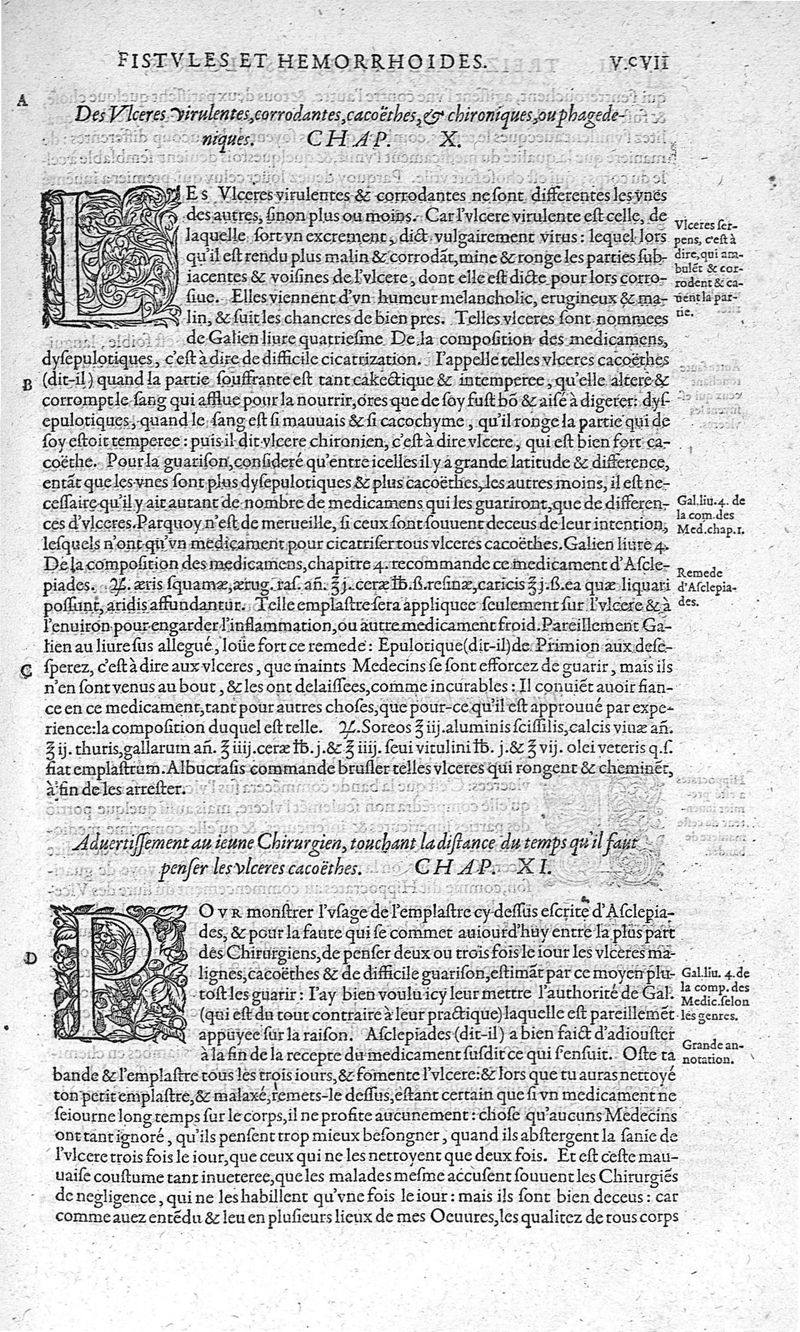 FISTVLES ET HEMORRHOIDES. V.CVII
A
Des Vlceres virulentes, corrodantes, cacoëthes, & chironiques, ou phagede-
niques. CHAP. X.
LEs Vlceres virulentes & corrodantes ne sont differentes les vnes
des autres, sinon plus ou moins. Car l'vlcere virulente est celle, de
laquelle sort vn excrement, dict vulgairement virus: lequel lors
qu'il est rendu plus malin & corrodāt, mine & ronge les parties sub-
iacentes & voisines de l'vlcere, dont elle est dicte pour lors corro-
siue. Elles viennent d'vn humeur melancholic, erugineux & ma-
lin, & suit les chancres de bien pres. Telles vlceres sont nommees
de Galien liure quatriesme De la composition des medicamens,
Vlceres ser-
pens, c'est à
dire, qui am-
bulēt & cor-
rodent & ca-
uent la par-
tie.
dysepulotiques, c'est à dire de difficile cicatrization. I'appelle telles vlceres cacoëthes
B
(dit-il) quand la partie souffrante est tant cakectique & intemperee, qu'elle altere &
corrompt le sang qui afflue pour la nourrir, ores que de soy fust bō & aisé à digerer: dys-
epulotiques, quand le sang est si mauuais & si cacochyme, qu'il ronge la partie qui de
soy estoit temperee: puis il dit vlcere chironien, c'est à dire vlcere, qui est bien fort ca-
coëthe. Pour la guarison, consideré qu'entre icelles il y a grande latitude & difference,
entāt que les vnes sont plus dysepulotiques & plus cacoëthes, les autres moins, il est ne-
cessaire qu'il y ait autant de nombre de medicamens qui les guariront, que de differen-
ces d'vlceres. Parquoy n'est de merueille, si ceux sont souuent deceus de leur intention,
lesquels n'ont qu'vn medicament pour cicatriser tous vlceres cacoëthes. Galien liure 4.
Gal. liu. 4. de
la com. des
Med. chap. 1.
De la composition des medicamens, chapitre 4. recommande ce medicament d'Ascle-
piades. ℞. æris squamæ, ærug. ras. añ. ℥j. ceræ ℔.ß. resinæ, caricis ℥j.ß. ea quæ liquari
possunt, aridis affundantur. Telle emplastre sera appliquee seulement sur l'vlcere & à
Remede
d'Asclepia-
des.
l'enuiron pour engarder l'inflammation, ou autre medicament froid. Pareillement Ga-
lien au liure sus allegué, loüe fort ce remede: Epulotique (dit-il) de Primion aux dese-
C
sperez, c'est à dire aux vlceres, que maints Medecins se sont efforcez de guarir, mais ils
n'en sont venus au bout, & les ont delaissees, comme incurables: Il conuiēt auoir fian-
ce en ce medicament, tant pour autres choses, que pour-ce qu'il est approuué par expe-
rience: la composition duquel est telle. ℞. Soreos ℥iij. aluminis scissilis, calcis viuæ añ.
℥ij. thuris, gallarum añ. ℥iiij. ceræ ℔.j. & ℥iiij. seui vitulini ℔.j. & ℥vij. olei veteris q.s.
fiat emplastrum. Albucrasis commande brusler telles vlceres qui rongent & cheminēt,
à fin de les arrester.
Aduertissement au ieune Chirurgien, touchant la distance du temps qu'il faut
penser les vlceres cacoëthes. CHAP. XI.
POVR monstrer l'vsage de l'emplastre cy dessus escrite d'Asclepia-
des, & pour la faute qui se commet auiourd'huy entre la plus part
D
des Chirurgiens, de penser deux ou trois fois le iour les vlceres ma-
lignes, cacoëthes & de difficile guarison, estimāt par ce moyen plu-
tost les guarir: I'ay bien voulu icy leur mettre l'authorité de Gal.
(qui est du tout contraire à leur practique) laquelle est pareillemēt
appuyee sur la raison. Asclepiades (dit-il) a bien faict d'adiouster
à la fin de la recepte du medicament susdit ce qui s'ensuit. Oste ta
Gal. liu. 4. de
la comp. des
Medic. selon
les genres.
Grande an-
notation.
bande & l'emplastre tous les trois iours, & fomente l'vlcere: & lors que tu auras nettoyé
ton petit emplastre, & malaxé, remets-le dessus, estant certain que si vn medicament ne
seiourne long temps sur le corps, il ne profite aucunement: chose qu'aucuns Medecins
ont tant ignoré, qu'ils pensent trop mieux besongner, quand ils abstergent la sanie de
l'vlcere trois fois le iour, que ceux qui ne les nettoyent que deux fois. Et est ceste mau-
uaise coustume tant inueteree, que les malades mesme accusent souuent les Chirurgiēs
de negligence, qui ne les habillent qu'vne fois le iour: mais ils sont bien deceus: car
comme auez entēdu & leu en plusieurs lieux de mes Oeuures, les qualitez de tous corps